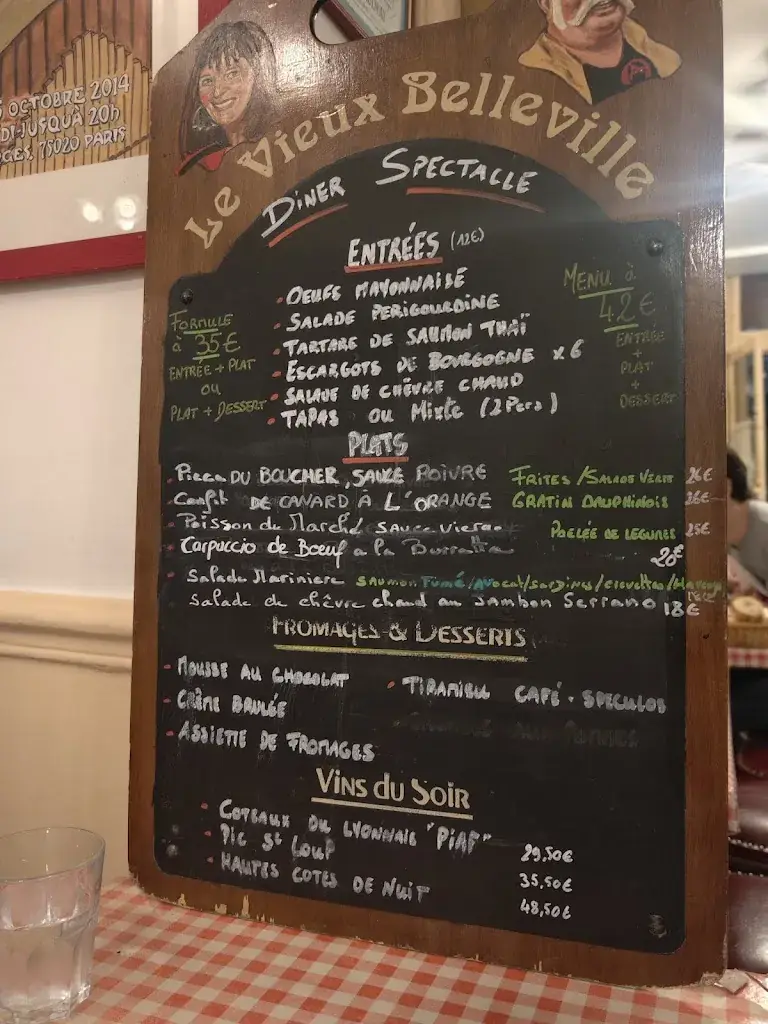 OCTOBRE 2014
DI-JUSQU'À 20h
75020 PARIS
Le Vieux Belleville
DÎNER SPECTACLE
ENTRÉES (12€)
OEUFS MAYONNAISE
SALADE PERIGOURDINE
TARTARE DE SAUMON THAÏ
ESCARGOTS DE BOURGOGNE x6
SALADE DE CHÈVRE CHAUD
TAPAS OU Mixte (2Pers)
FORMULE
à 35€
ENTRÉE + PLAT
OU
PLAT + DESSERT
MENU à
42€
ENTRÉE
+
PLAT
+
DESSERT
PLATS
Piece DU BOUCHER, SAUCE POIVRE FRITES/SALADE VERTE 26€
Confit DE CANARD À L'ORANGE GRATIN DAUPHINOIS 26€
Poisson du Marché sauce vierge POELÉE DE LEGUMES 25€
Carpaccio de Bœuf a la Burratta 28€
Salade Mariniere SAUMON FUMÉ/AVocat/Sardines/crevettes/
Salade de chêvre chaud au Jambon Serrano 18€
FROMAGES & DESSERTS
MOUSSE AU CHOCOLAT
CRÈME BRULÉE
ASSIETTE DE FROMAGES
TIRAMISU CAFÉ - SPECULOS
Vins du Soir
COTEAUX DU LYONNAIS "PiAF" 29,50€
PIC St LOUP 35,50€
HAUTES COTES DE NUIT 48,50€